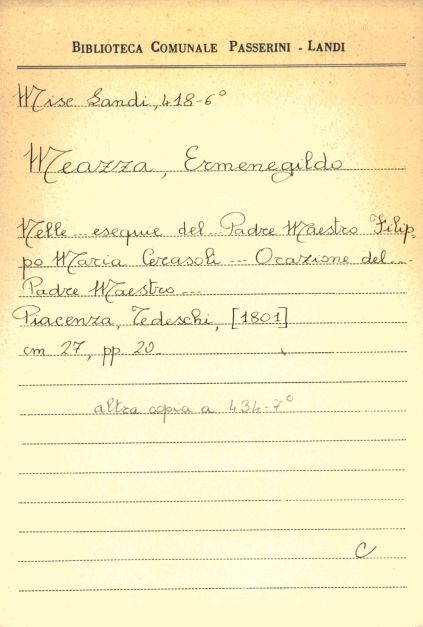 BIBLIOTECA COMUNALE PASSERINI - LANDI
Misc Landi, 418-6°
Meazza, Ermenegildo
Nelle ... esequie del... Padre Maestro Filip-
po Maria Cerasoli ... Orazione del...
Padre Maestro...
Piacenza, Tedeschi, [1801]
cm 27, pp 20.
altra copia a 434-7°
C